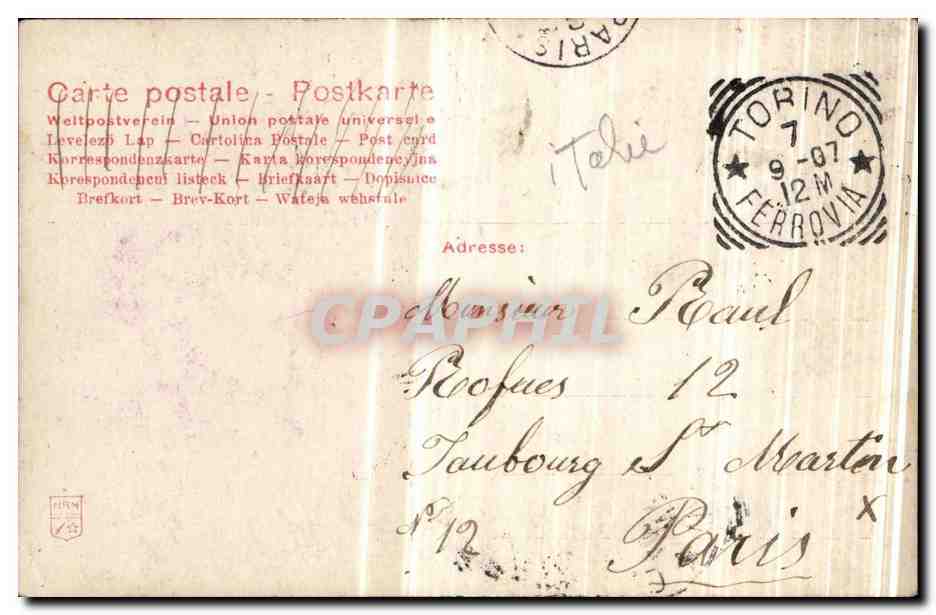 Carte postale - Postkarte
Weltpostverein — Union postale universelle
Levelező Lap — Cartolina Postale — Post card
Korrespondenzkarte — Karta korespondencyjna
Korespondencni listeck — Briefkaart — Dopisnice
Brefkort — Brev-Kort — Wateja wehstule
italie
PARIS
TORINO
7
9-07
12M
FERROVIA
Adresse:
Monsieur Raul
12
Faubourg St Martin
No 12 Paris
x
CPAPHIL